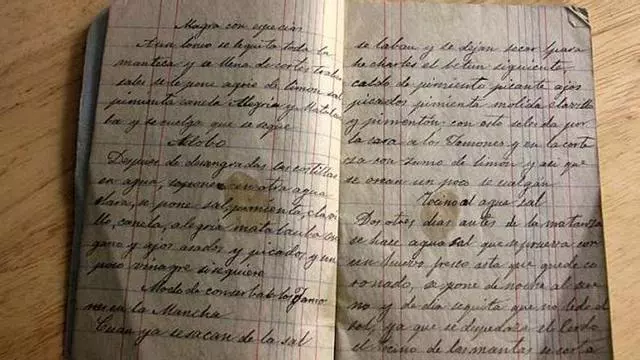 Magra con especias
A un lomo se le quita toda la
manteca y se llena de cortes trasber
sales se le pone agrio de limon sal
pimienta canela Alegria y Matalau
ba y se cuelga que se seque
Adobo
Depues de desangradas las costillas
en agua, se ponen en otra agua
clara, se pone sal, pimienta, clavi
llo, canela, alegria matalauba en
gano y ajos asados y picados y un
poco vinagre si se quiere
Modo de conserbar los Jamo
nes en la Mancha
Cuan ya se sacan de la sal
se laban y se dejan secar para
hecharles el betun siguiente,
caldo de pimiento picante ajos
picados pimienta molida clavillo
y pimentón con esto se les da por
la cara a los Jamones y en la corte
za con zumo de limon y asi que
se orean un poco se cuelgan
Tocino al agua sal
Dos o tres dias antes de la matanza
se hace agua sal que se prueva con
un huevo fresco asta que quede co
ronado, se pone de noche al sere
no y de dia se quita que no le de el
sol, ya que se despedaza el cerdo
el tocino de las mantas se corta